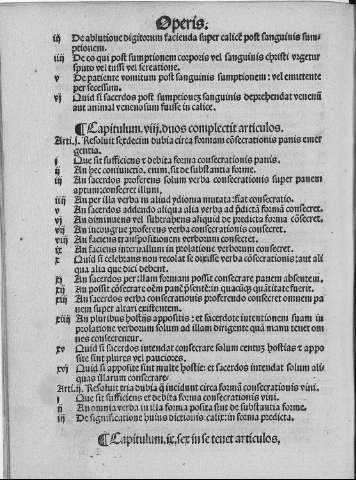 Operis.
iij De ablutione digitorum facienda super calicẽ post sanguinis sum-
ptionem.
iiij De eo qui post sumptionem corporis vel sanguinis christi vrgetur
sputo vel tussi vel screatione.
v De patiente vomitum post sanguinis sumptionem: vel emittente
per secessum.
vj Quid si sacerdos post sumptionez sanguinis deprehendat venenũ
aut animal venenosum fuisse in calice.
¶ Capitulum.viij.duos complectit articulos.
Arti.j. Resoluit sexdecim dubia circa formam cõsecrationis panis emer
gentia.
j Que sit sufficiens et debita forma consecrationis panis.
ij An hec coniunctio, enim, sit de substantia forme.
iij An sacerdos proferens solum verba consecrationis super panem
aptum: consecret illum.
iiij An per illa verba in aliud ydioma mutata: fiat consecratio.
v An sacerdos addendo aliqua alia verba ad p̃dictã formã cõsecret.
vj An diminuens vel subtrahens aliquid de predicta forma cõsecret.
vij An incongrue proferens verba consecrationis consecret.
viij An faciens transpositionem verborum consecret.
ix An faciens interuallum in prolatione verborum consecret.
x Quid si celebrans non recolat se dixisse verba cõsecrationis: aut ali
qua alia que dici debent.
xj An sacerdos per illam formam possit consecrare panem absentem.
xij An possit cõsecrare oẽm panẽ p̃sentẽ: in quacũq quãtitate fuerit.
xiij An sacerdos verba consecrationis proferendo consecret omnem pa
nem super altari existentem.
xiiij An pluribus hostijs appositis: et sacerdote intentionem suam in
prolatione verborum solum ad illam dirigente quã manu tenet om
nes consecrentur.
xv Quid si sacerdos intendat consecrare solum centuz hostias et appo
site sint plures vel pauciores.
xvj Quid si apposite sint multe hostie: et sacerdos intendat solum ali
quas illarum consecrare.
Arti.ij. Resoluit tria dubia q̃ incidunt circa formã consecrationis vini.
j Que sit sufficiens et debita forma consecrationis vini.
ij An omnia verba in illa forma posita sint de substantia forme.
iij De significatione huius dictionis.calix: in forma predicta.
¶ Capitulum.ix.sex in se tenet articulos.